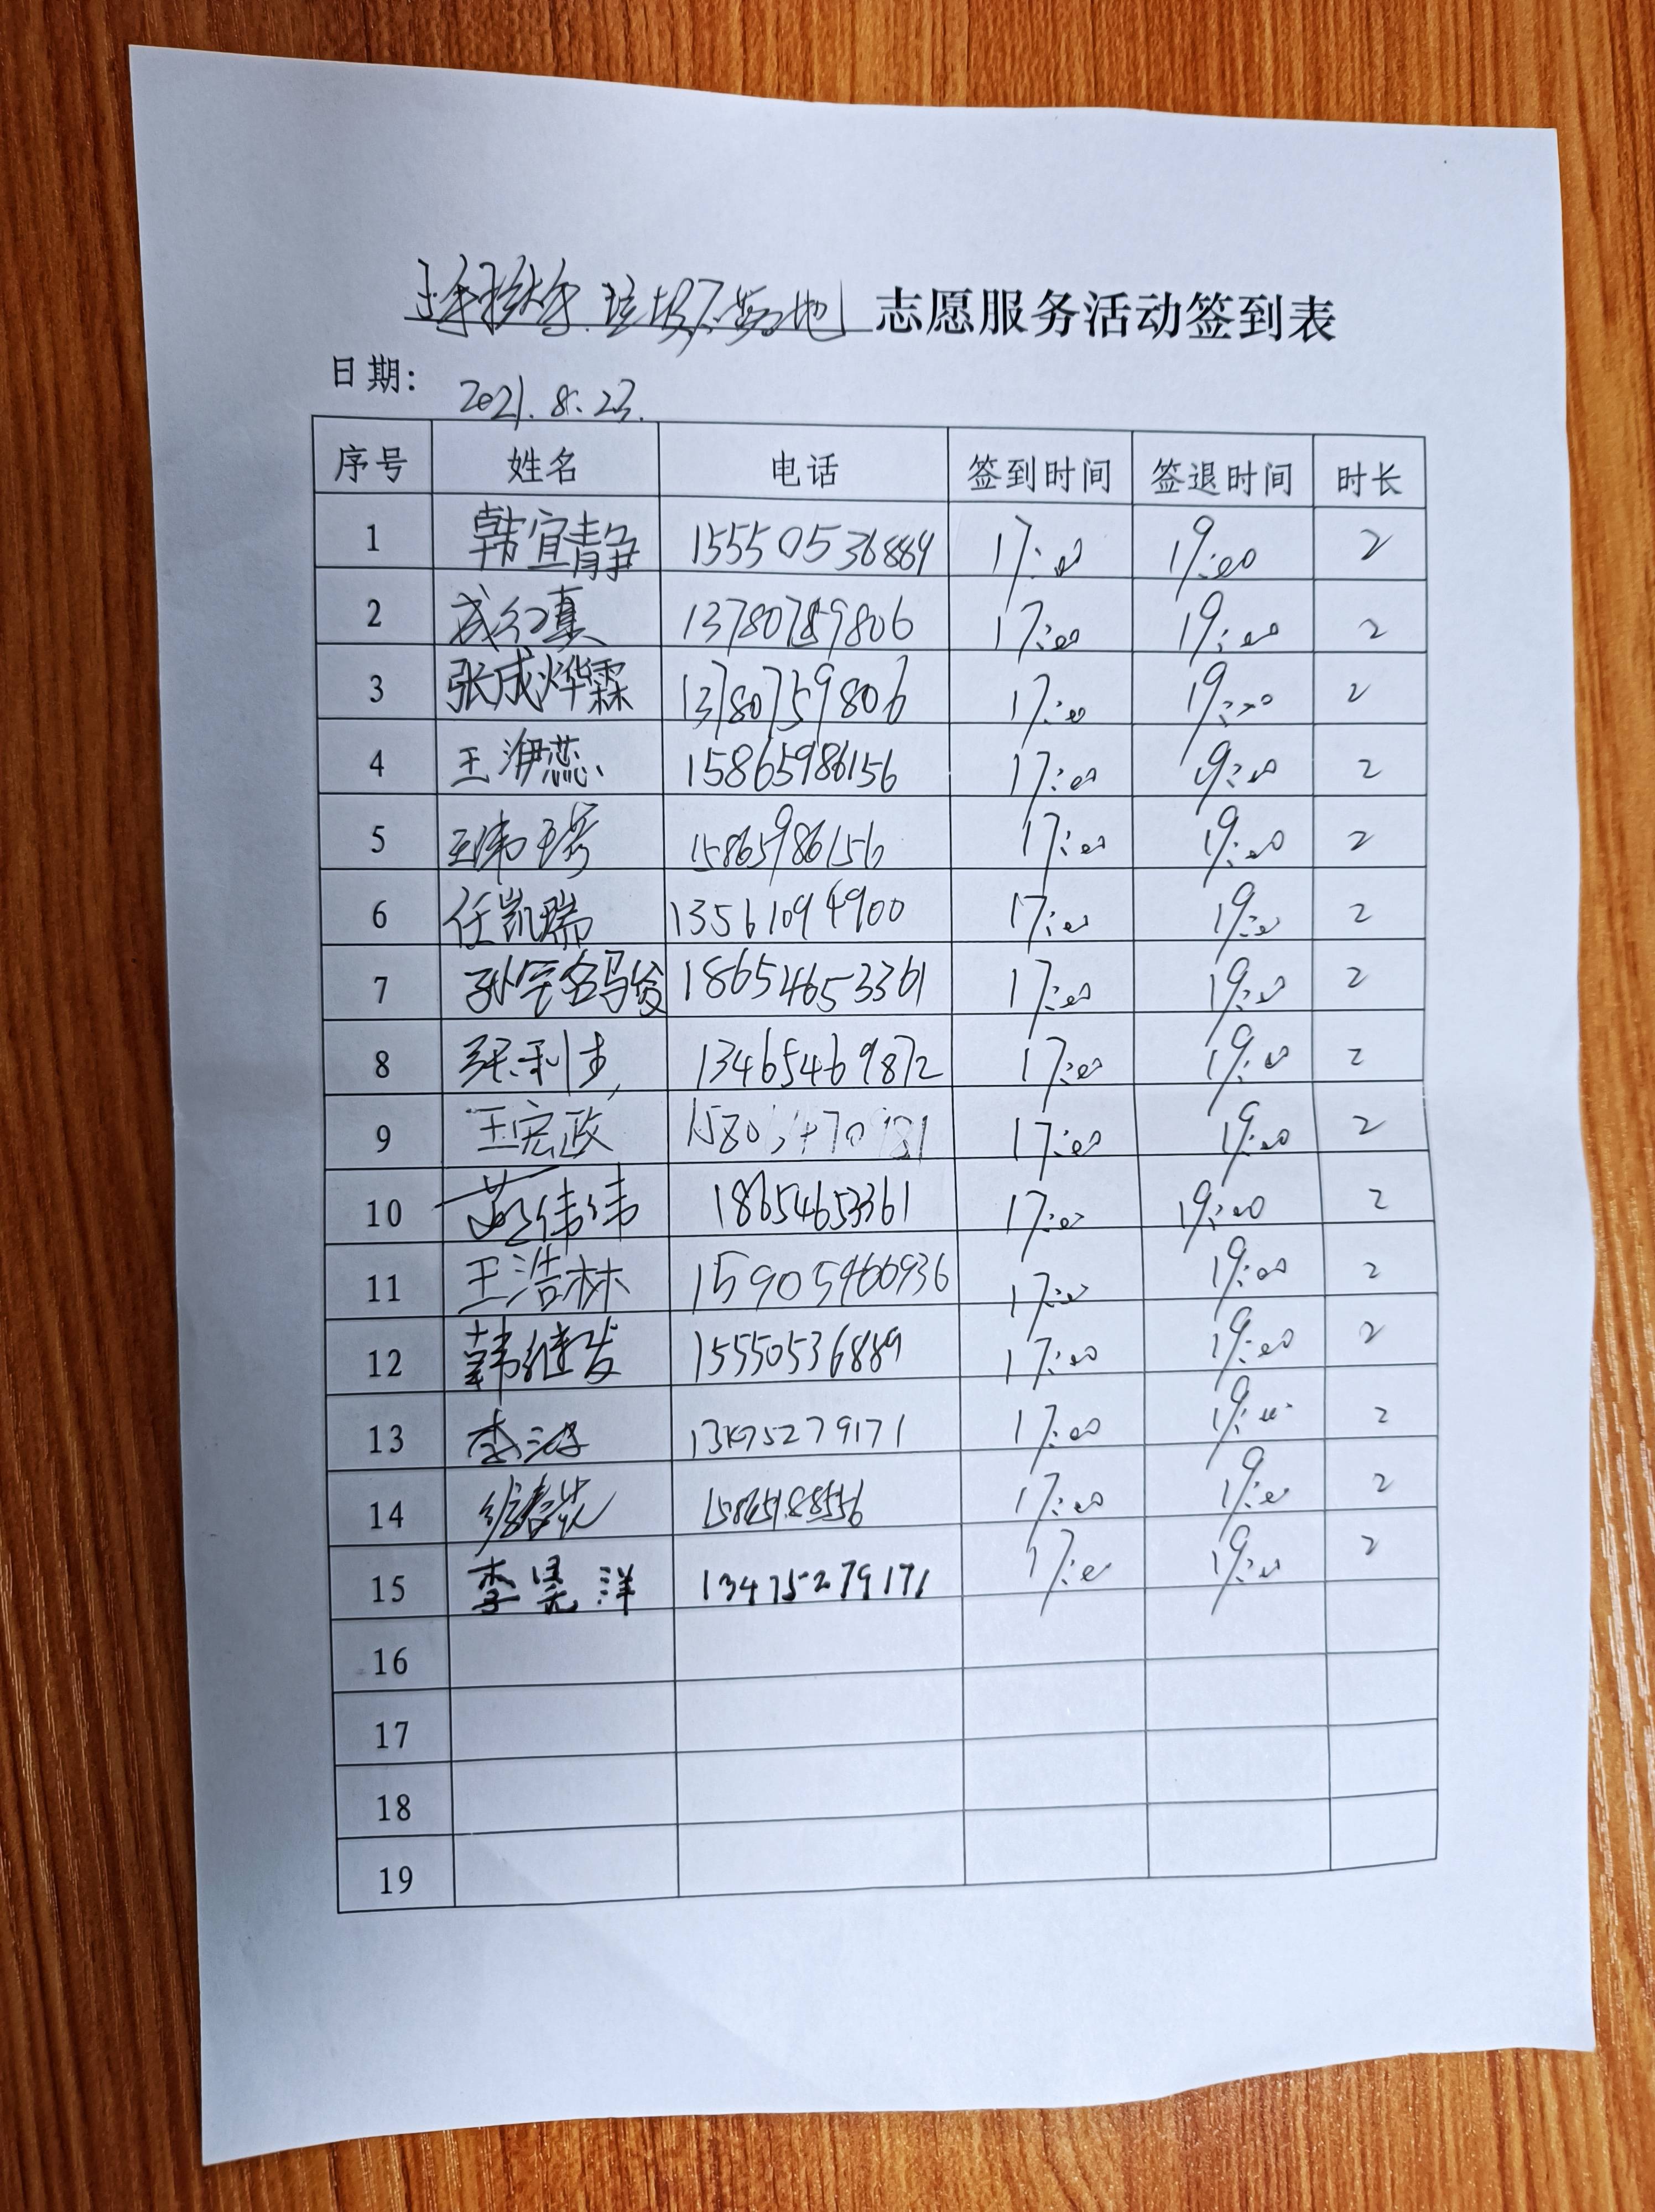 垃圾不落地 志愿服务活动签到表
日期: 2021.8.23.
序号 姓名 电话 签到时间 签退时间 时长
1 韩宜静 15550536889 17:00 19:00 2
2 成红真 13780759806 17:00 19:00 2
3 张成烨霖 13780759806 17:00 19:00 2
4 王洢蕊 15865986156 17:00 19:00 2
5 15865986156 17:00 19:00 2
6 任凯瑞 13561094900 17:00 19:00 2
7 18654653361 17:00 19:00 2
8 13465469872 17:00 19:00 2
9 王宏政 17:00 19:00 2
10 18654653361 17:00 19:00 2
11 王浩林 15905466936 17:00 19:00 2
12 韩继发 15550536889 17:00 19:00 2
13 13475279171 17:00 19:00 2
14 17:00 19:00 2
15 李昊洋 13475279171 17:00 19:00 2
16
17
18
19